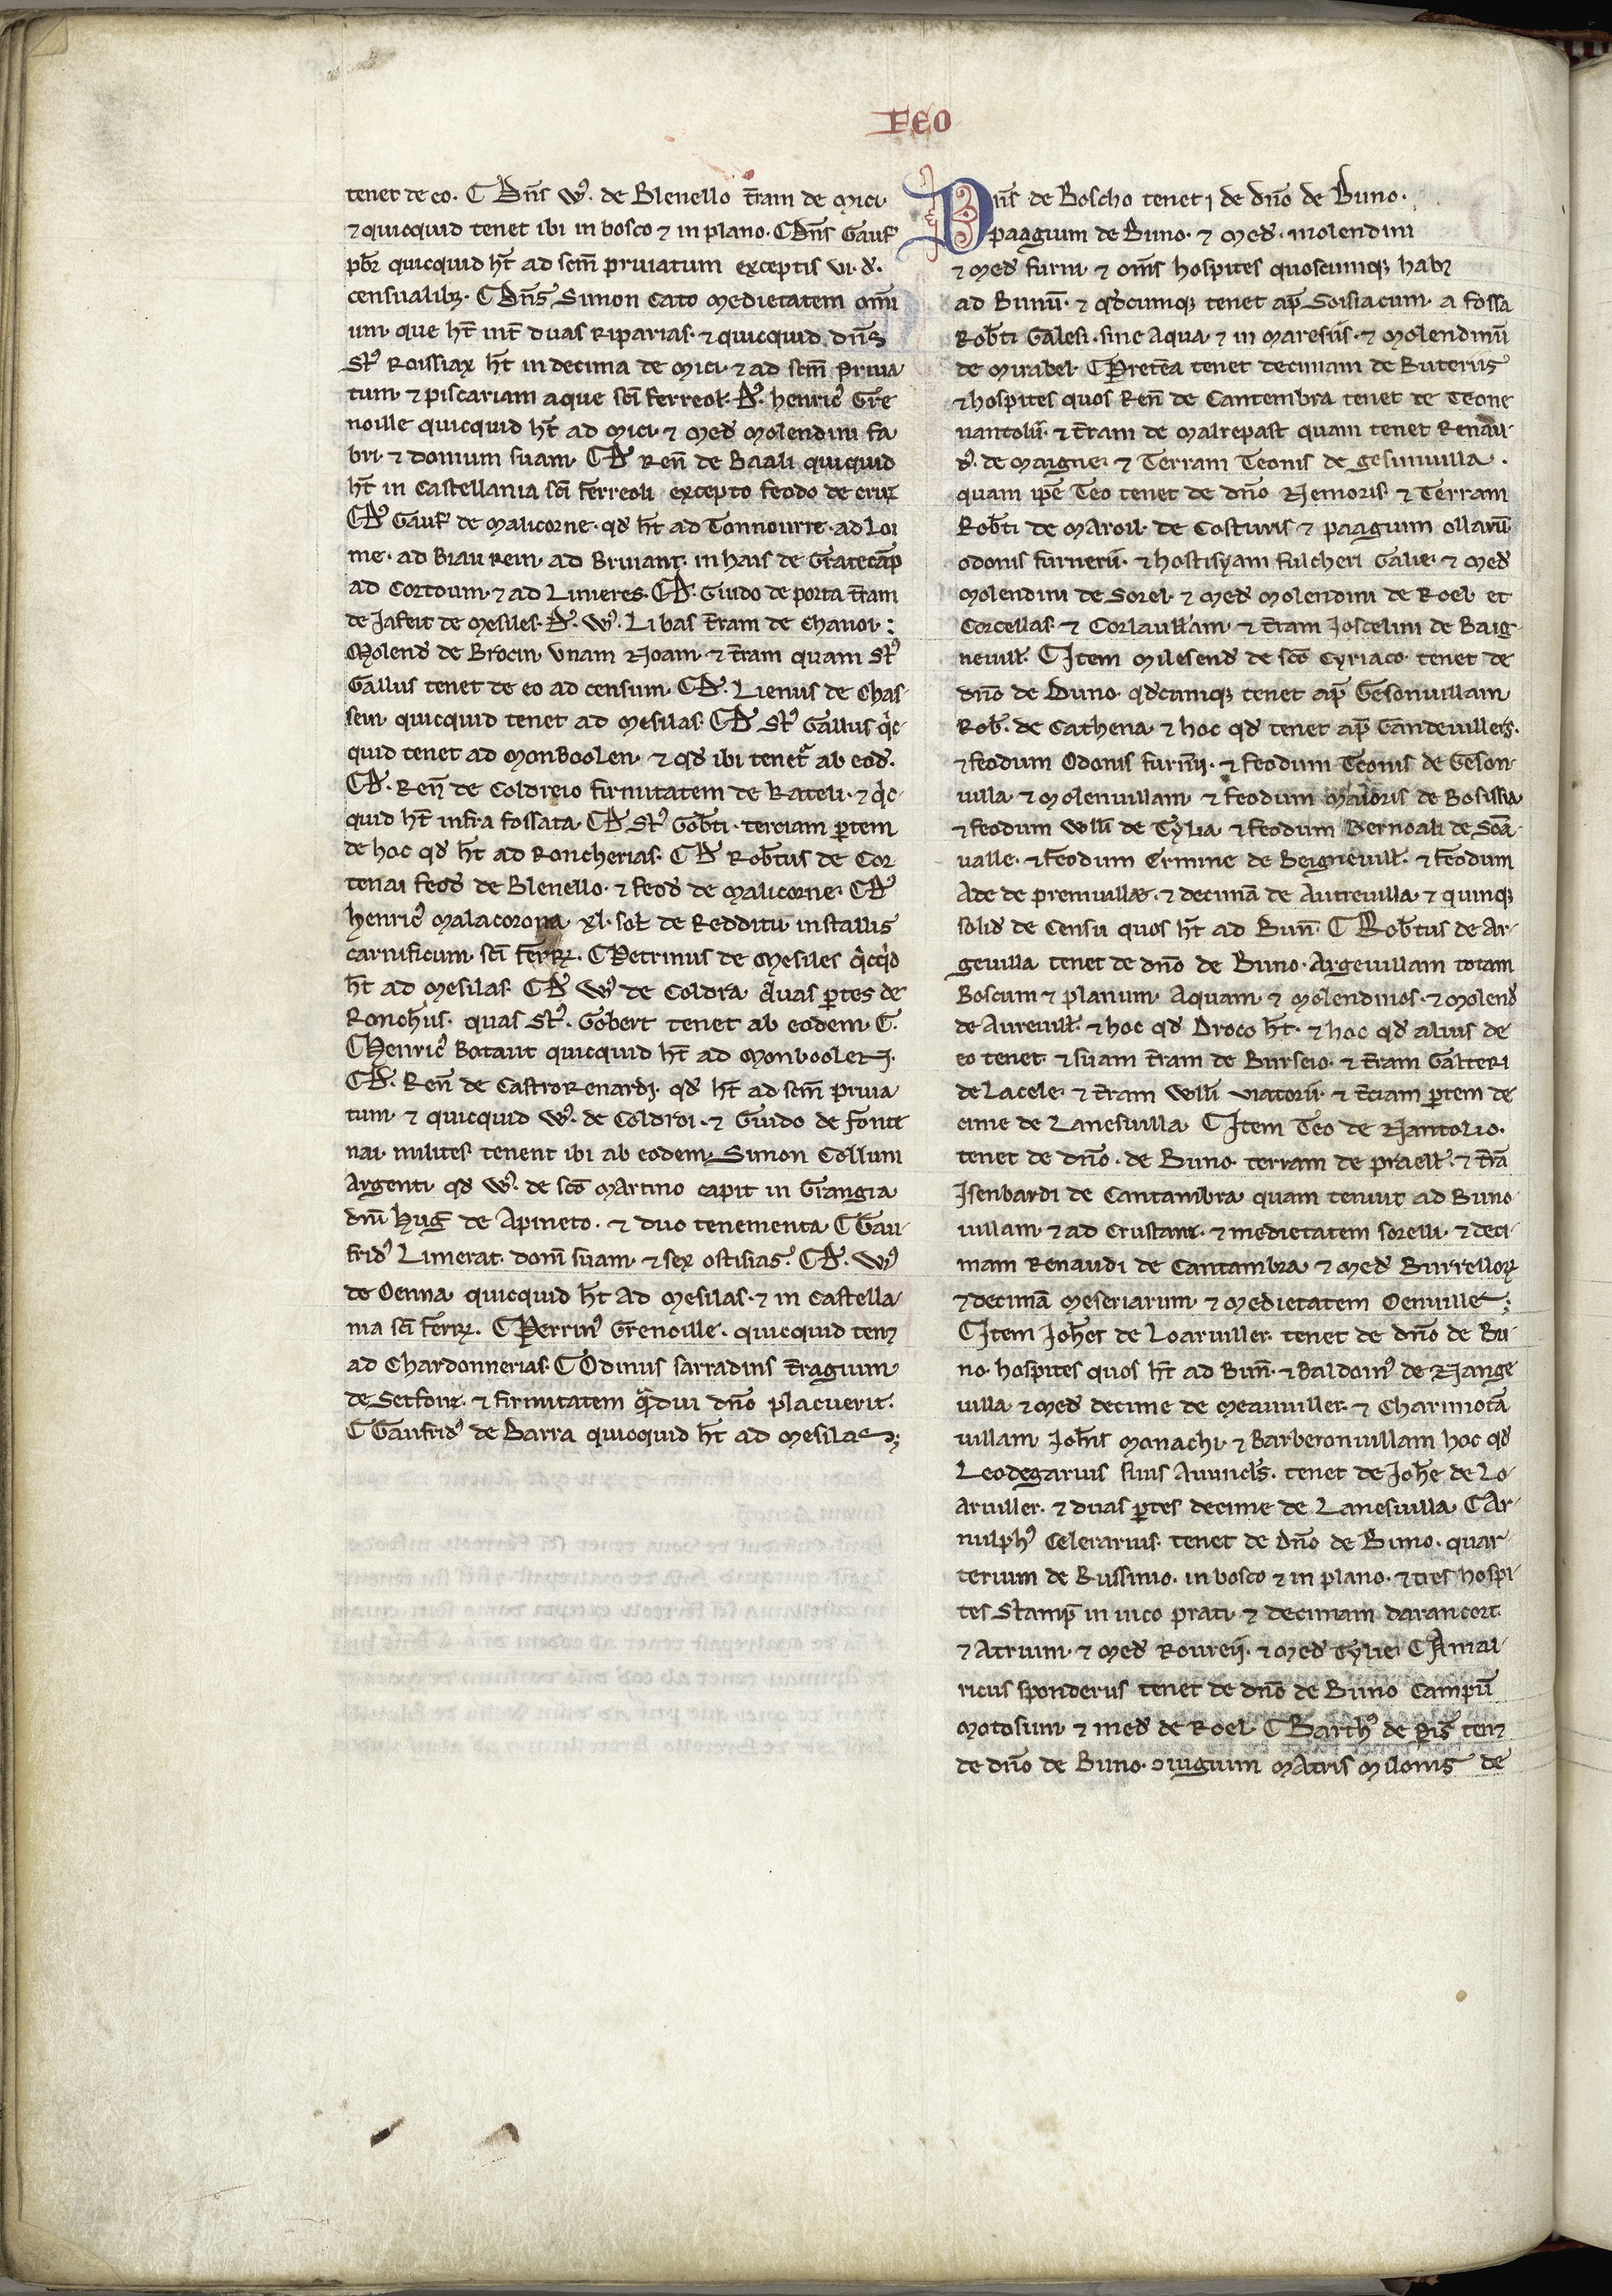 FEO
tenet de eo. ⁋ Dn̄s W᾿. de Blenello t̄ram de mici
⁊ quicquid tenet ibi in bosco ⁊ in plano. ⁋ Dn̄s Gauf᾿
pb̄r quicquid h̄t ad sc̄m priuatum exceptis vi. d᾿.
censualib;. ⁋ Dn̄s Simon Cato medietatem omni
um que h̄t int̄ duas riparias. ⁊ quicquid dn̄s
St᾿ Roissiax h̄t in decima de mici. ⁊ ad sc̄m priua
tum. ⁊ piscariam aque sc̄i ferreol. D᾿. henric᾿ Gre
noille quicquid h̄t ad mici. ⁊ med᾿ molendini fa
bri. ⁊ domum suam. ⁋ D᾿ Ren̄ de Baali quiquid
h̄t in castellania sc̄i ferreoli excepto feodo de crux
⁋ D᾿ Gauf᾿ de malicorne. qd᾿ h̄t ad Tonnourre. ad Loi
me. ad Biau rein. ad Bruiant. in hais de Gratecāp
ad Cortoum. ⁊ ad Linieres. ⁋ D᾿. Guido de porta t̄ram
de Jafeit de mesiles. D᾿. W᾿. Li bas t̄ram de chanoi:
Molend᾿ de Brocin. vnam Noam. ⁊ t̄ram quam St᾿
Gallus tenet de eo ad censum. ⁋ D᾿. Lienus de chas-
sein quicquid tenet ad mesilas. ⁋ D᾿ St᾿ Gallus qic-
quid tenet ad monboolen. ⁊ qd᾿ ibi tenet᾿ ab eod᾿.
⁋ D᾿. Ren̄ de Coldreio firmitatem de Rateli. ⁊ qic-
quid h̄t infra fossata. ⁋ D᾿ St᾿ Gob̄ti. terciam ꝑtem
de hoc qd᾿ h̄t ad Roncherias. ⁋ D᾿ Rob̄tus de Cor
tenai feod᾿ de Blenello. ⁊ feod᾿ de malicorne. ⁋ D᾿
henric᾿ malacorona. xl. sol᾿ de redditu in stallis
carnificum sc̄i ferr̄. ⁋ Petrinus de mesiles qicqid
h̄t ad mesilas. ⁋ D᾿ W᾿ de Coldra duas ꝑtes de
Ronch̄iis. quas St᾿. Gobert tenet ab eodem G.
⁋ Henric᾿ Botaut quicquid h̄t ad monboolet.
⁋ D᾿. Ren̄ de Castrorenardi. qd᾿ h̄t ad sc̄m priua
tum. ⁊ quicquid W᾿. de Coldroi. ⁊ Guido de fonte
nai. milites tenent ibi ab eodem. Simon Collum
Argenti. qd᾿ W᾿. de sc̄o martino capit in Grangia
dn̄i hug᾿ de Apineto. ⁊ duo tenementa. ⁋ Gau-
frid᾿ Limerat. dom̄ suam. ⁊ sex ostisias. ⁋ D᾿. W᾿
de Oenna quicquid h̄t ad mesilas. ⁊ in castella-
nia sc̄i ferr̄. ⁋ Perrin᾿ Grenoille. quicquid ten;
ad Chardonnerias. ⁋ Odinus sarradins t̄ragium
de Setfonz. ⁊ firmitatem qᵃdiu dn̄o placuerit.
⁋ Gaufrid᾿ de Barra quicquid h̄t ad mesilas;
Dn̄s de Boscho tenet de dn̄o de Buno.
paagium de Buno. ⁊ med᾿. molendini
⁊ med᾿ furni. ⁊ om̄s hospites quoscumq; hab;
ad Bunū. ⁊ qd᾿cumq; tenet ap̄ Soisiacum. a fossa
Rob̄ti Galesi. siue Aqua. ⁊ in maresiis. ⁊ molendinū
de mirabel. ⁋ Pret̄ea tenet decimam de Buteriis
⁊ hospites quos Ren̄ de Cantembra tenet de Teone
nantolii. ⁊ t̄ram de malrepast quam tenet Renau-
d᾿. de maigne. ⁊ Terram Teonis de gesunuilla.
quam ip̄e Teo tenet de dn̄o Nemoris. ⁊ Terram
Rob̄ti de maroil. de Costuris. ⁊ paagium ollarū
odonis furnerii. ⁊ hostisyam fulcheri Galie. ⁊ med᾿
molendini de Sorel. ⁊ med᾿ molendini de Roel. et
Corcellas. ⁊ Corlaull᾿am. ⁊ t̄ram Joscelini de Baig-
neuill᾿. ⁋ Item milesend᾿ de sc̄o Cyriaco. tenet de
dn̄o de Buno. qd᾿cumq; tenet ap̄ Gesonuillam
Rob᾿. de Cathena. ⁊ hoc qd᾿ tenet ap̄ Gandeuillers.
⁊ feodum Odonis furn̄ij. ⁊ feodum Teonis de Geson-
uilla. ⁊ molenuillam. ⁊ feodum maioris de Bosissia
⁊ feodum Will̄i de Tylia. ⁊ feodum Bernoali de Soā-
ualle. ⁊ feodum Ermine de Beigneuill᾿. ⁊ feodum
Ade de premuillæ. ⁊ decimā de Autreuilla. ⁊ quinq;
solid᾿ de censu quos h̄t ad Bun̄. ⁋ Rob̄tus de Ar-
geuilla tenet de dn̄o de Buno. Argeuillam totam
Boscum ⁊ planum. Aquam. ⁊ molendinos. ⁊ molend᾿
de Aureuill᾿. ⁊ hoc qd᾿ Droco h̄t. ⁊ hoc qd᾿ alius de
eo tenet. ⁊ suam t̄ram de Burseio. ⁊ t̄ram Galteri
de Lacele. ⁊ t̄ram Will̄i viatorii. ⁊ t̄ciam ꝑtem de
cime de Lanesuilla. ⁋ Item Teo de Nantolio.
tenet de dn̄o. de Buno. terram de praell᾿. ⁊ t̄rā
Isenbardi de Cantambra quam tenuit ad Buno
uillam. ⁊ ad crustant. ⁊ medietatem sorelli. ⁊ deci-
mam Renaudi de Cantambra. ⁊ med᾿ Burrelloꝝ
⁊ decimā meseriarum. ⁊ medietatem Oenuille;
⁋ Item Joh̄es de Loaruiller. tenet de dn̄o de Bu-
no. hospites quos h̄t ad Bun̄. ⁊ Baldoin᾿ de Nange
uilla. ⁊ med᾿ decime de meauuiller. ⁊ Charmotā
uillam Joh̄is monachi. ⁊ Barberonuillam hoc qd᾿
Leodegarius suus Auuncl᾿s. tenet de Joh̄e de Lo-
aruiller. ⁊ duas ꝑtes decime de Lanesuilla. ⁋ Ar-
nulph᾿ Celerarius. tenet de dn̄o de Buno. quar-
terium de Russinio. in bosco ⁊ in plano. ⁊ tres hospi-
tes Stamp̄ in uico prati. ⁊ decimam darancort.
⁊ Atrium. ⁊ med᾿ Roureij. ⁊ med᾿ Tylie. ⁋ Amal-
ricus sponderus tenet de dn̄o de Buno Campū
motosum. ⁊ med᾿ de Roel. ⁋ Barth᾿ de pis̄ ten;
de dn̄o de Buno. ɔiugium matris milonis de